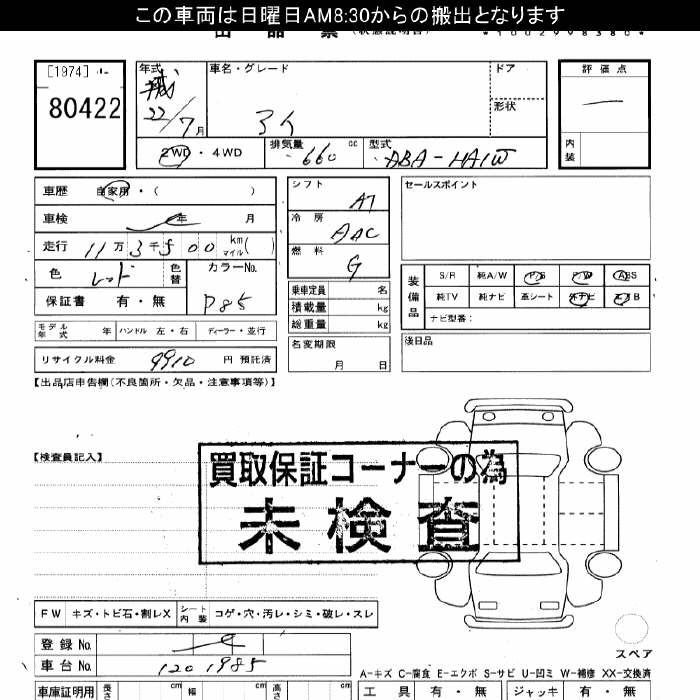 この車両は日曜日AM8:30からの搬出となります
出品票 (状態説明書) *1002998380*
[1974]
80422
年式 平成 22/7月
車名・グレード アイ
ドア
形状
評価点 —
内装
2WD・4WD
排気量 660 cc
型式 ABA-HA1W
車歴 自家用・( )
シフト AT
セールスポイント
車検 年 月
冷房 AAC
走行 11万3千500 km マイル( )
燃料 G
色 レッド 色替
カラーNo. P85
保証書 有・無
乗車定員 名
積載量 kg
総重量 kg
装備品 S/R 純A/W P/S P/W ABS
純TV 純ナビ 革シート 外ナビ エアB
ナビ型番:
モデル年式 年 ハンドル 左・右 ディーラー・並行
名変期限 月 日
後日品
リサイクル料金 9910 円 預託済
【出品店申告欄(不良箇所・欠品・注意事項等)】
【検査員記入】
買取保証コーナーの為
未検査
FW キズ・トビ石・割レX シート内装 コゲ・穴・汚レ・シミ・破レ・スレ
登録No.
車台No. 1201985
スペア
A-キズ C-腐食 E-エクボ S-サビ U-凹ミ W-補修 XX-交換済
車庫証明用 長さ cm 幅 cm 高さ cm
工具 有・無 ジャッキ 有・無